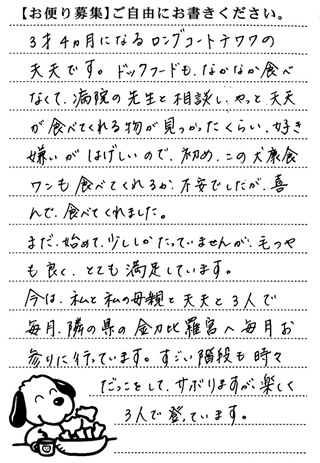 【お便り募集】ご自由にお書きください。
3才4ヵ月になるロングコートチワワの
天天です。ドックフードも、なかなか食べ
なくて、病院の先生と相談し、やっと天天
が食べてくれる物が見つかったくらい、好き
嫌いがはげしいので、初め、この犬康食
ワンも食べてくれるか、不安でしたが、喜
んで、食べてくれました。
まだ、始めて、少ししかたっていませんが、毛つや
も良く、とても満足しています。
今は、私と私の母親と天天と3人で
毎月、隣の県の金刀比羅宮へ毎月お
参りに行っています。すごい階段も時々
だっこをして、サボりますが、楽しく
3人で登っています。